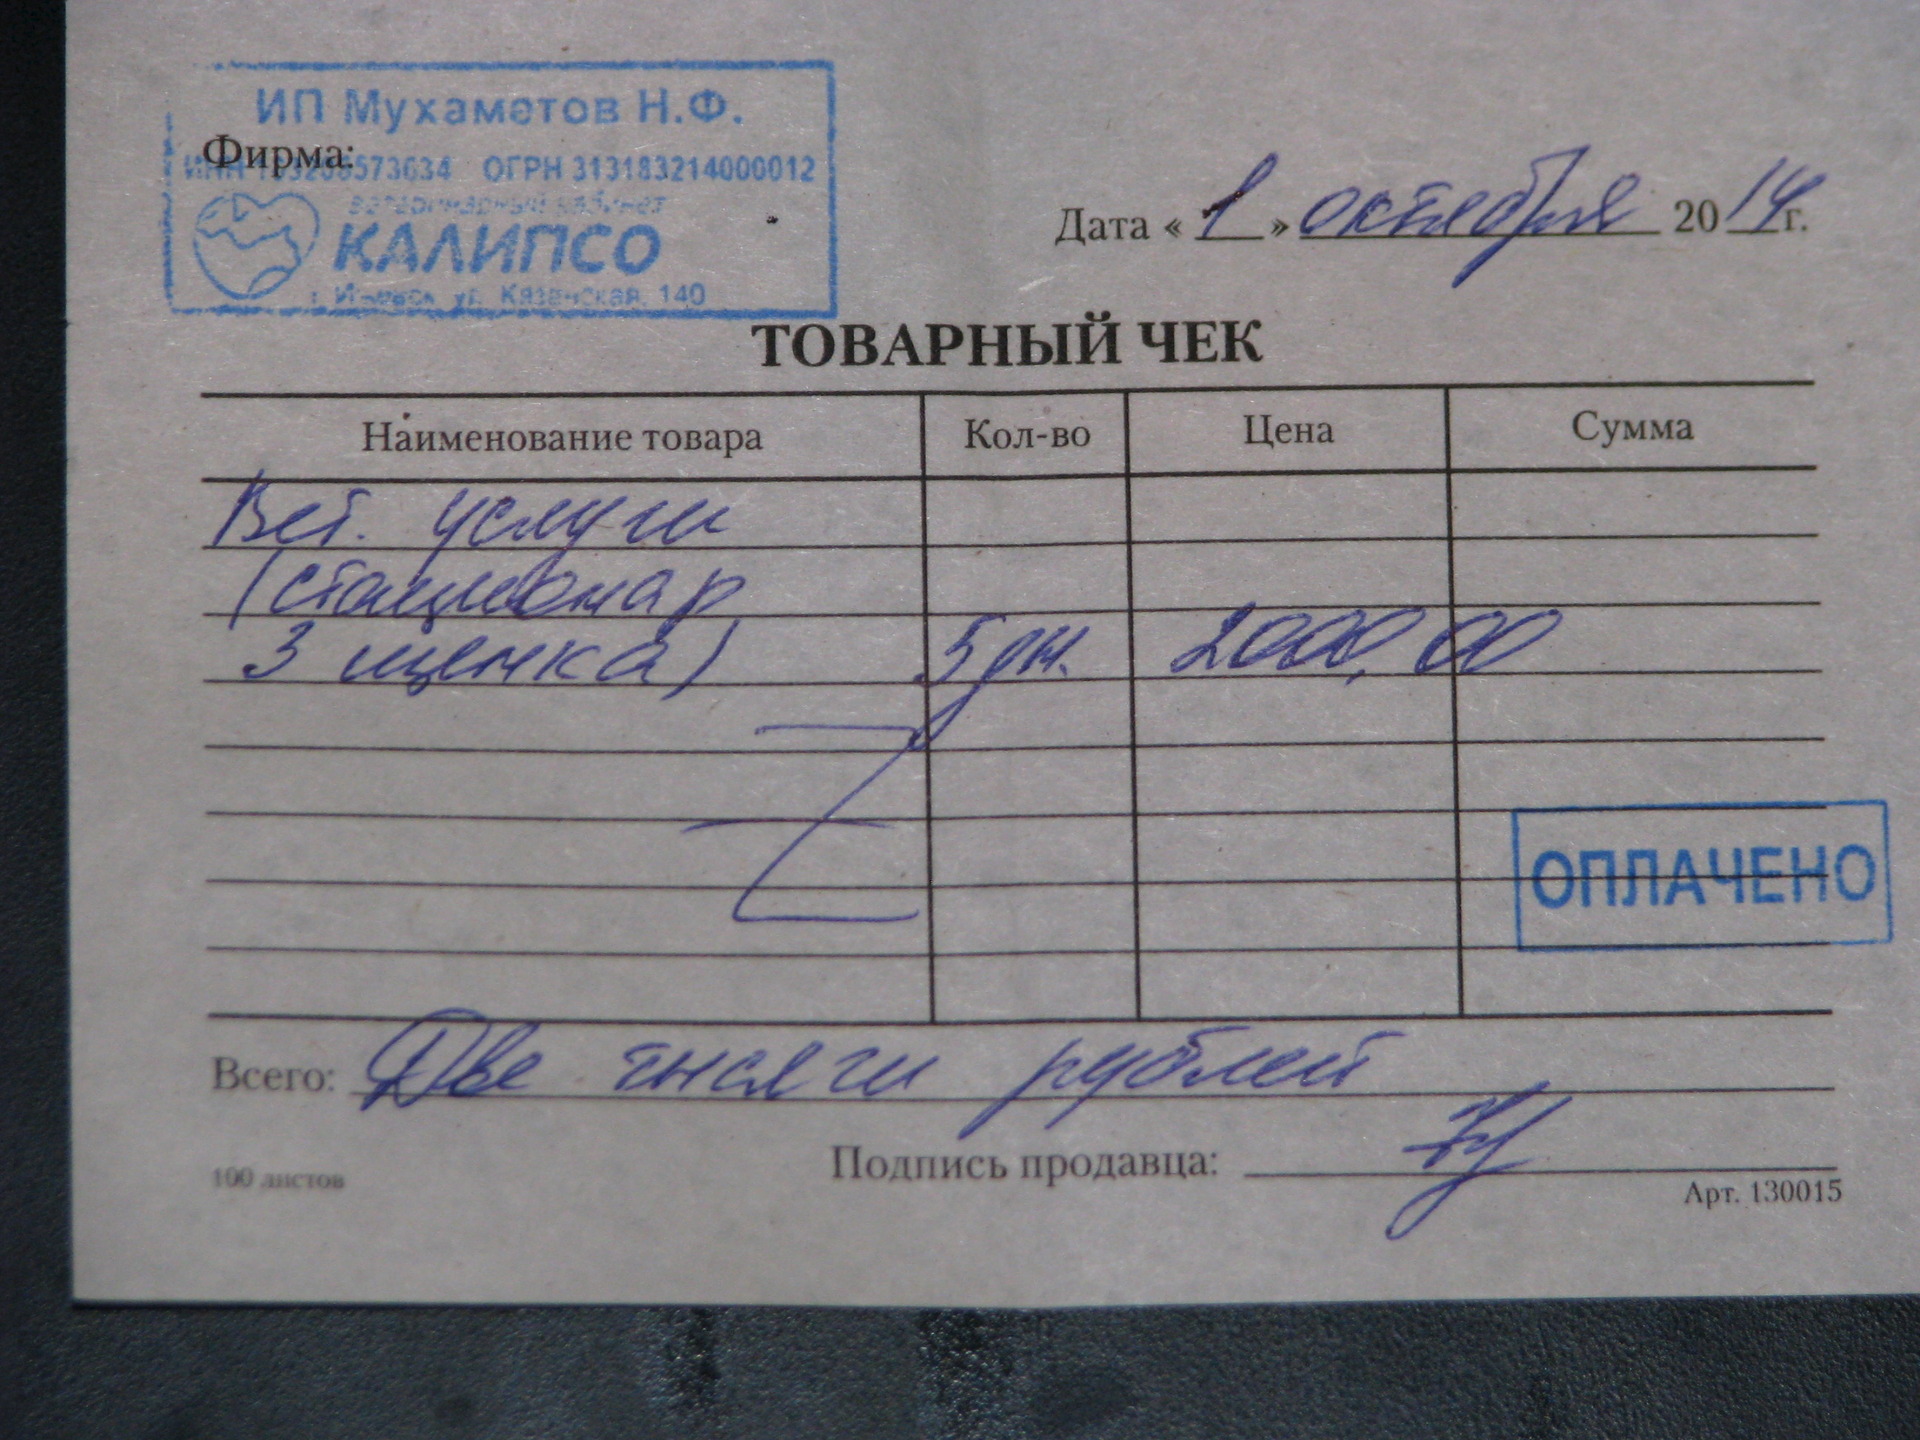 ИП Мухаметов Н.Ф.
Фирма:
ИНН 573634 ОГРН 313183214000012
ветеринарный кабинет
КАЛИПСО
г. Ижевск, ул. Казанская, 140
Дата « 1 » октября 2014 г.
ТОВАРНЫЙ ЧЕК
Наименование товара Кол-во Цена Сумма
Вет. услуги
(стационар
3 щенка) 5 дн. 2000,00
ОПЛАЧЕНО
Всего: Две тысячи рублей
Подпись продавца:
100 листов
Арт. 130015